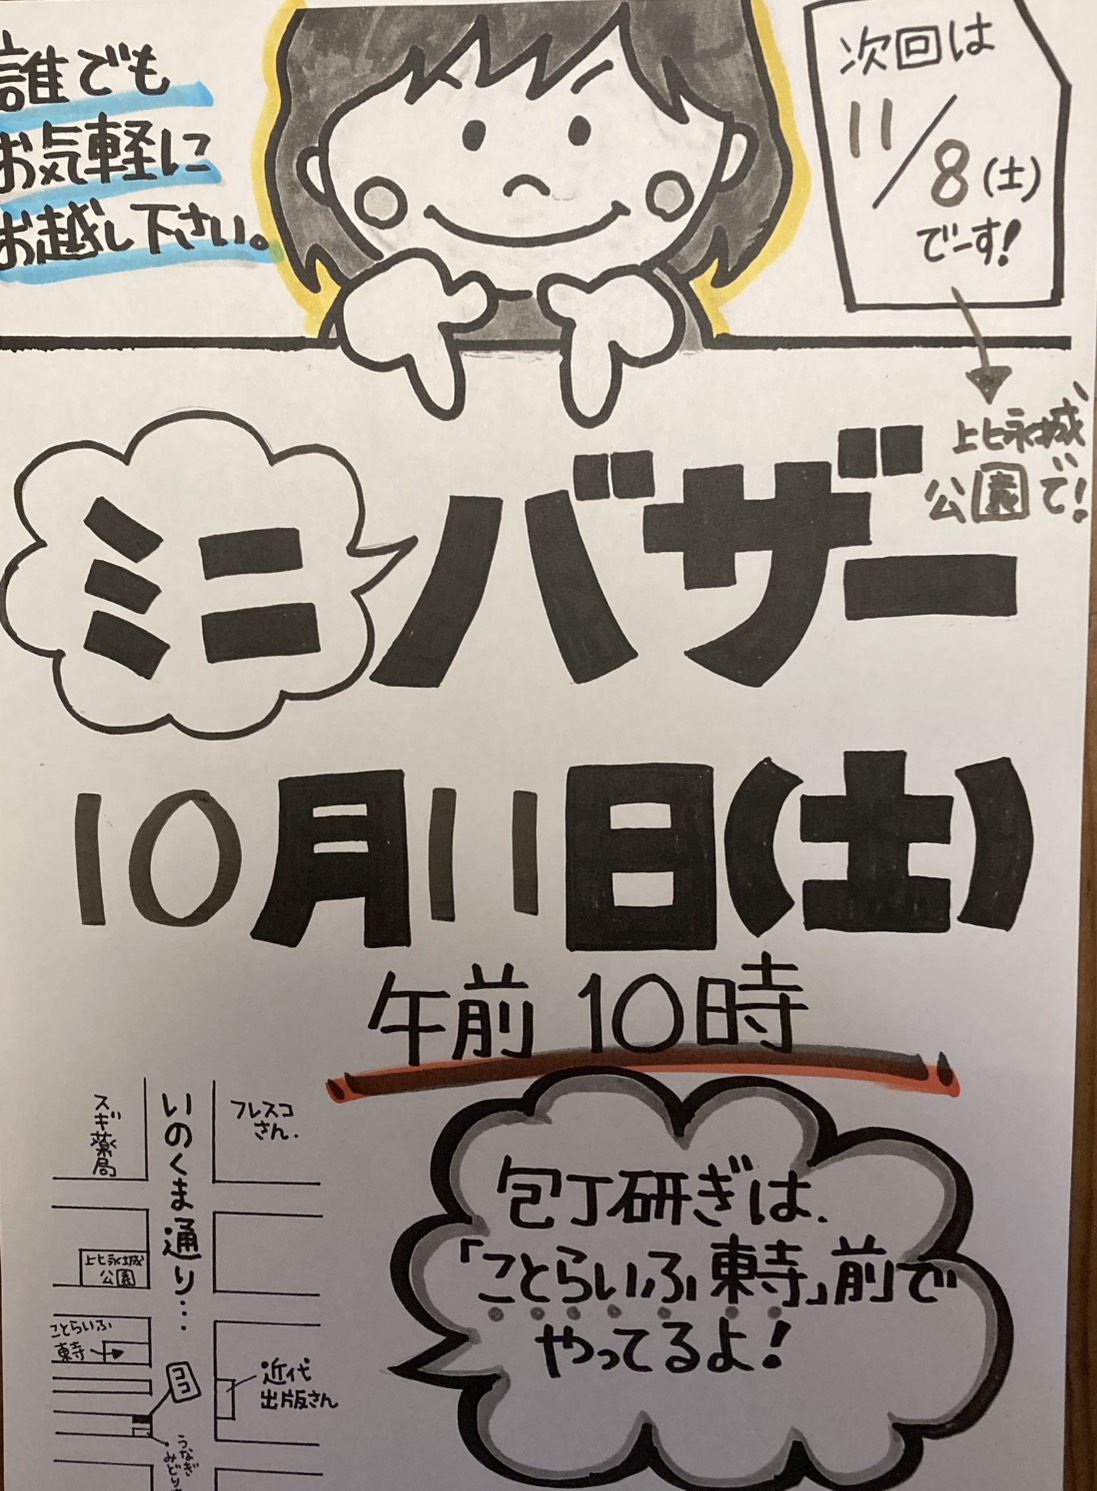 誰でも
お気軽に
お越し下さい。
次回は
11/8(土)
でーす!
上比永城
公園で!
ミニバザー
10月11日(土)
午前10時
スギ薬局
いのくま通り…
フレスコ
さん.
上比永城
公園
ことらいふ
東寺
ココ
近代
出版さん
うなぎ
包丁研ぎは、
「ことらいふ東寺」前で
やってるよ!